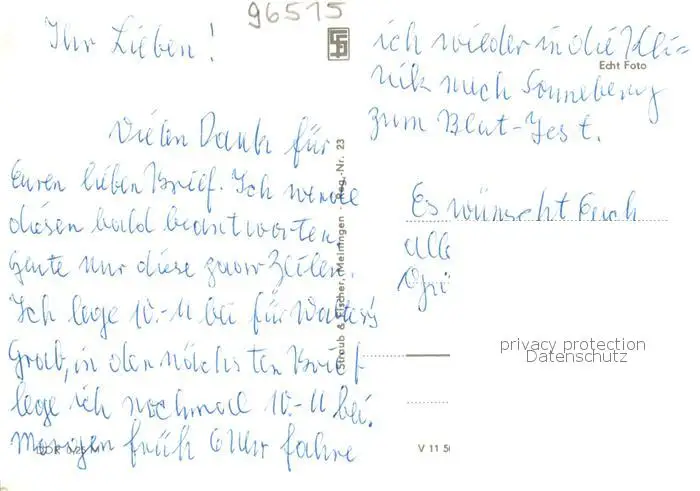 96515
Ihr Lieben!
Vielen Dank für
Euren lieben Brief. Ich werde
diesen bald beantworten,
heute nur diese paar Zeilen.
Ich lege 10.-M bei für Vaters
Grab, in den nächsten Brief
lege ich nochmal 10.-M bei.
Morgen früh 6 Uhr fahre
ich wieder in die Kli=
nik nach Sonneberg
zum Blut-Test.
Es wünscht Euch
alle
Grü
Echt Foto
Straub & Fischer, Meiningen Reg.-Nr. 23
V 11 50
privacy protection
Datenschutz